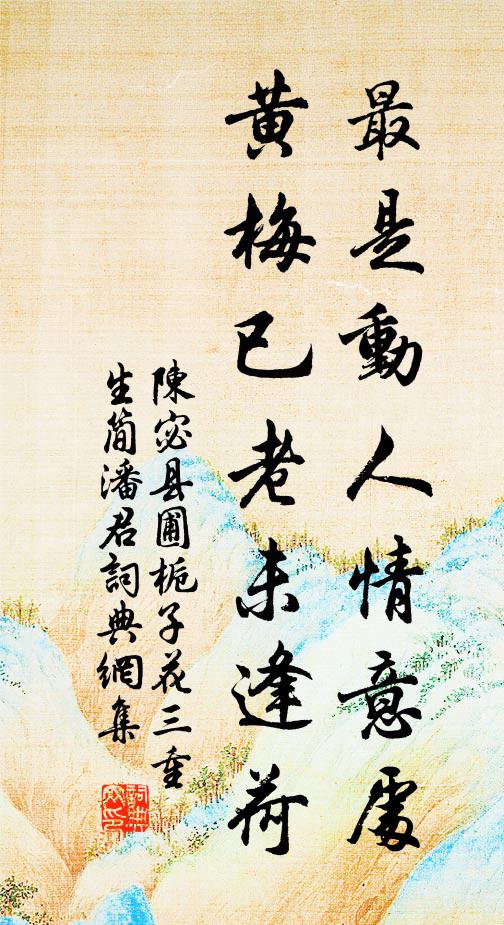 最是動人情意處
黄梅已老未逢荷
陳宓县圃栀子花三重
生蕳潘君詞典網集